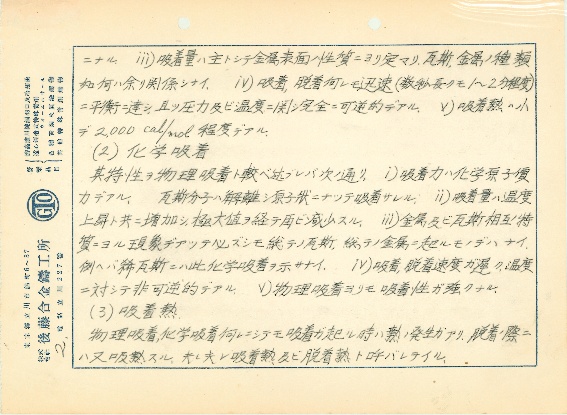 ニナル iii)吸着量ハ主トシテ金属表面ノ性質ニヨリ定マリ、瓦斯、金属ノ種類
如何ハ余リ関係シナイ. iv)吸着、脱着何レモ迅速(数秒、長クモ1〜2分程度)
ニ平衡ニ達シ、且ツ圧力及ビ温度ニ関シ完全ニ可逆的デアル. v)吸着熱ハ小
デ2,000 cal/mol 程度デアル.
(2) 化学吸着
其特性ヲ物理吸着ト較ベ述ブレバ次ノ通リ. i)吸着力ハ化学原子価
力デアル. 瓦斯分子ハ解離シ原子状ニナツテ吸着サレル. ii)吸着量ハ温度
上昇ト共ニ増加シ極大値ヲ経テ再ビ減少スル. iii)金属及ビ瓦斯相互ノ特
質ニヨル現象デアツテ必ズシモ総テノ瓦斯、総テノ金属ニ起ルモノデハナイ.
例ヘバ稀瓦斯ニハ此化学吸着ヲ示サナイ. iv)吸着、脱着速度ガ遅ク、温度
ニ対シテ非可逆的デアル. v)物理吸着ヨリモ吸着性ガ強クナル.
(3) 吸着熱
物理吸着、化学吸着何レニシテモ吸着ガ起ル時ハ熱ノ発生ガアリ、脱着ノ際ニ
ハ又吸熱スル. 夫々夫レ吸着熱及ビ脱着熱ト呼バレテイル.
GTO
後藤合金鑄工所
2.